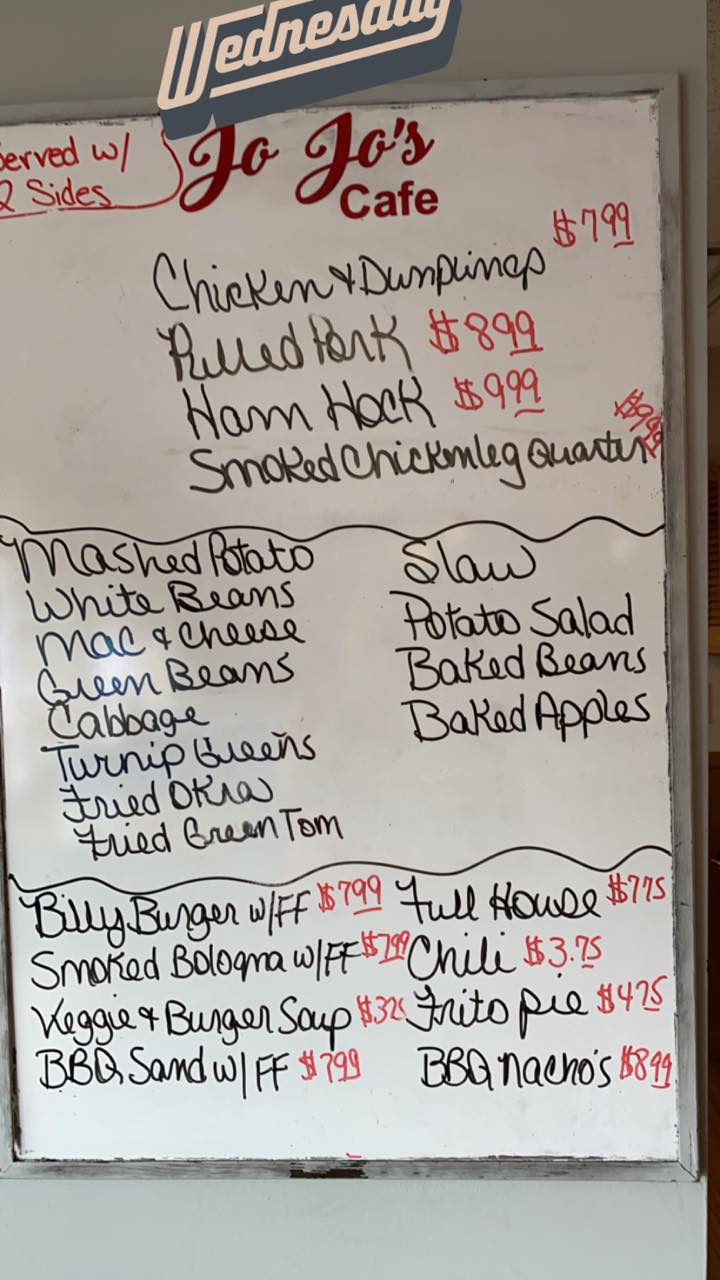 Wednesday
Served w/
2 Sides
Jo Jo's
Cafe
Chicken & Dumplings $799
Pulled Pork $899
Ham Hock $999
Smoked Chicken leg Quarter $999
Mashed Potato
White Beans
Mac & Cheese
Green Beans
Cabbage
Turnip Greens
Fried Okra
Fried Green Tom
Slaw
Potato Salad
Baked Beans
Baked Apples
Billy Burger w/FF $799
Smoked Bologna w/FF $799
Veggie & Burger Soup $325
BBQ Sand w/FF $799
Full House $775
Chili $3.75
Frito pie $475
BBQ nacho's $899